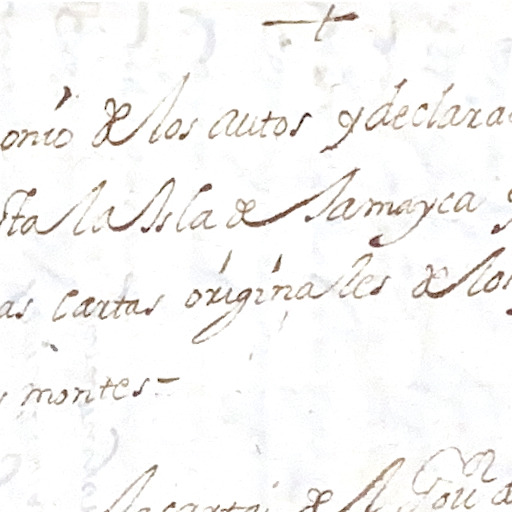 onio de los autos y declara
sta la Isla de Jamayca y
as cartas originales de los
montes-
la carta de el Gou.or d